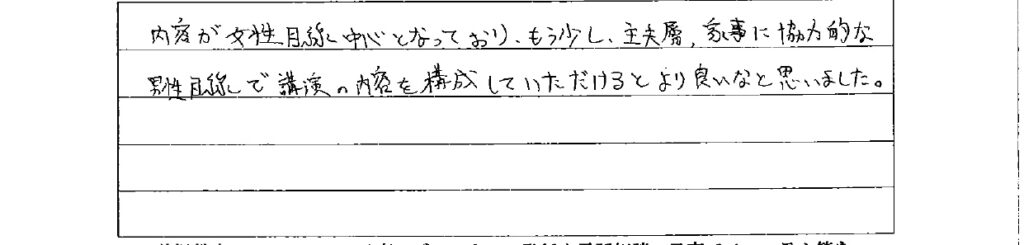 内容が女性目線中心となっており、もう少し、主夫層、家事に協力的な
男性目線で講演の内容を構成していただけるとより良いなと思いました。